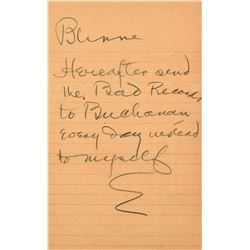 Hereafter send
the Bad Records
to Buchanan
every day instead
to myself
E